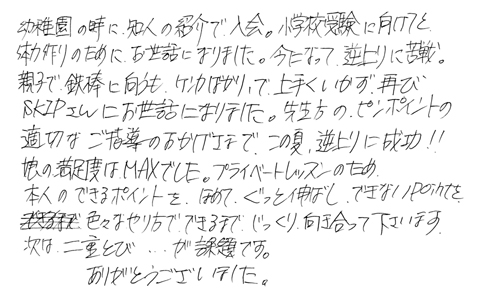 幼稚園の時に、知人の紹介で入会。小学校受験に向けてと
体力作りのために、お世話になりました。今になって、逆上りに苦戦。
親子で、鉄棒に向うも、ケンカばかりで、上手くいかず、再び
SKIPさんにお世話になりました。先生方の、ピンポイントの
適切なご指導のおかげさまで、この夏、逆上りに成功!!
娘の満足度はMAXでした。プライベートレッスンのため、
本人のできるポイントを、ほめて、ぐっと伸ばし、できないpointを、
色々なやり方で、できるまで、じっくり、向き合って下さいます。
次は、二重とび…が課題です。
ありがとうございました。